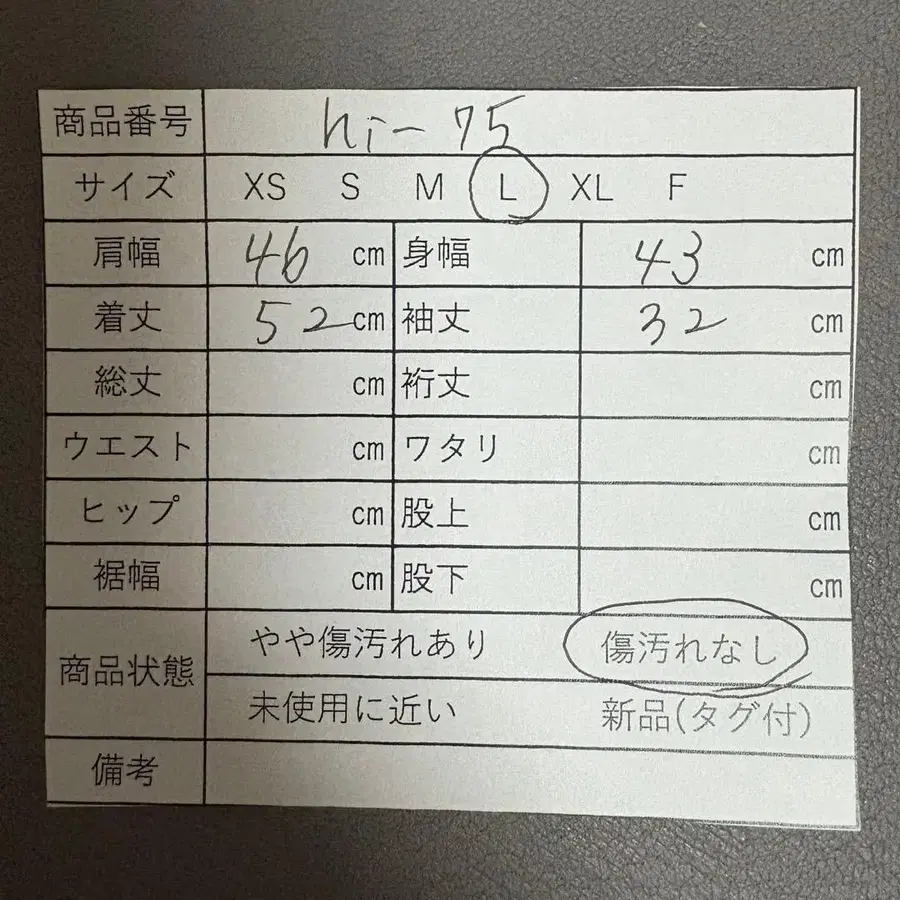 商品番号 hi-75
サイズ XS S M L XL F
肩幅 46 cm 身幅 43 cm
着丈 52 cm 袖丈 32 cm
総丈 cm 裄丈 cm
ウエスト cm ワタリ cm
ヒップ cm 股上 cm
裾幅 cm 股下 cm
商品状態 やや傷汚れあり 傷汚れなし
未使用に近い 新品(タグ付)
備考